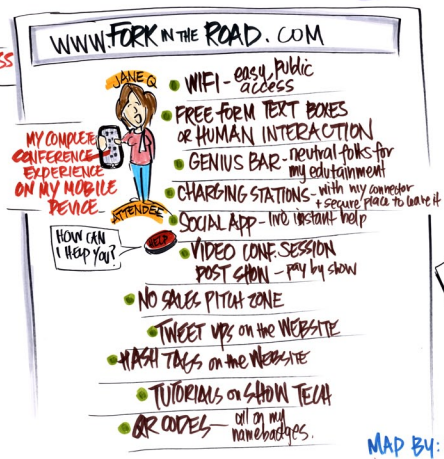 WWW.FORK IN THE ROAD.COM
SS
JANE Q
ATTENDEE
MY COMPLETE
CONFERENCE
EXPERIENCE
ON MY MOBILE
DEVICE
HOW CAN
I HELP YOU?
HELP
WIFI - easy, public
access
FREE FORM TEXT BOXES
OR HUMAN INTERACTION
GENIUS BAR - neutral folks for
my edutainment
CHARGING STATIONS - with my connector
+ secure place to leave it
SOCIAL APP - live instant help
VIDEO CONF. SESSION
POST SHOW - pay by show
NO SALES PITCH ZONE
TWEET UPS on the WEBSITE
HASH TAGS on the WEBSITE
TUTORIALS on SHOW TECH
QR CODES - all on my
namebadges.
MAP BY: